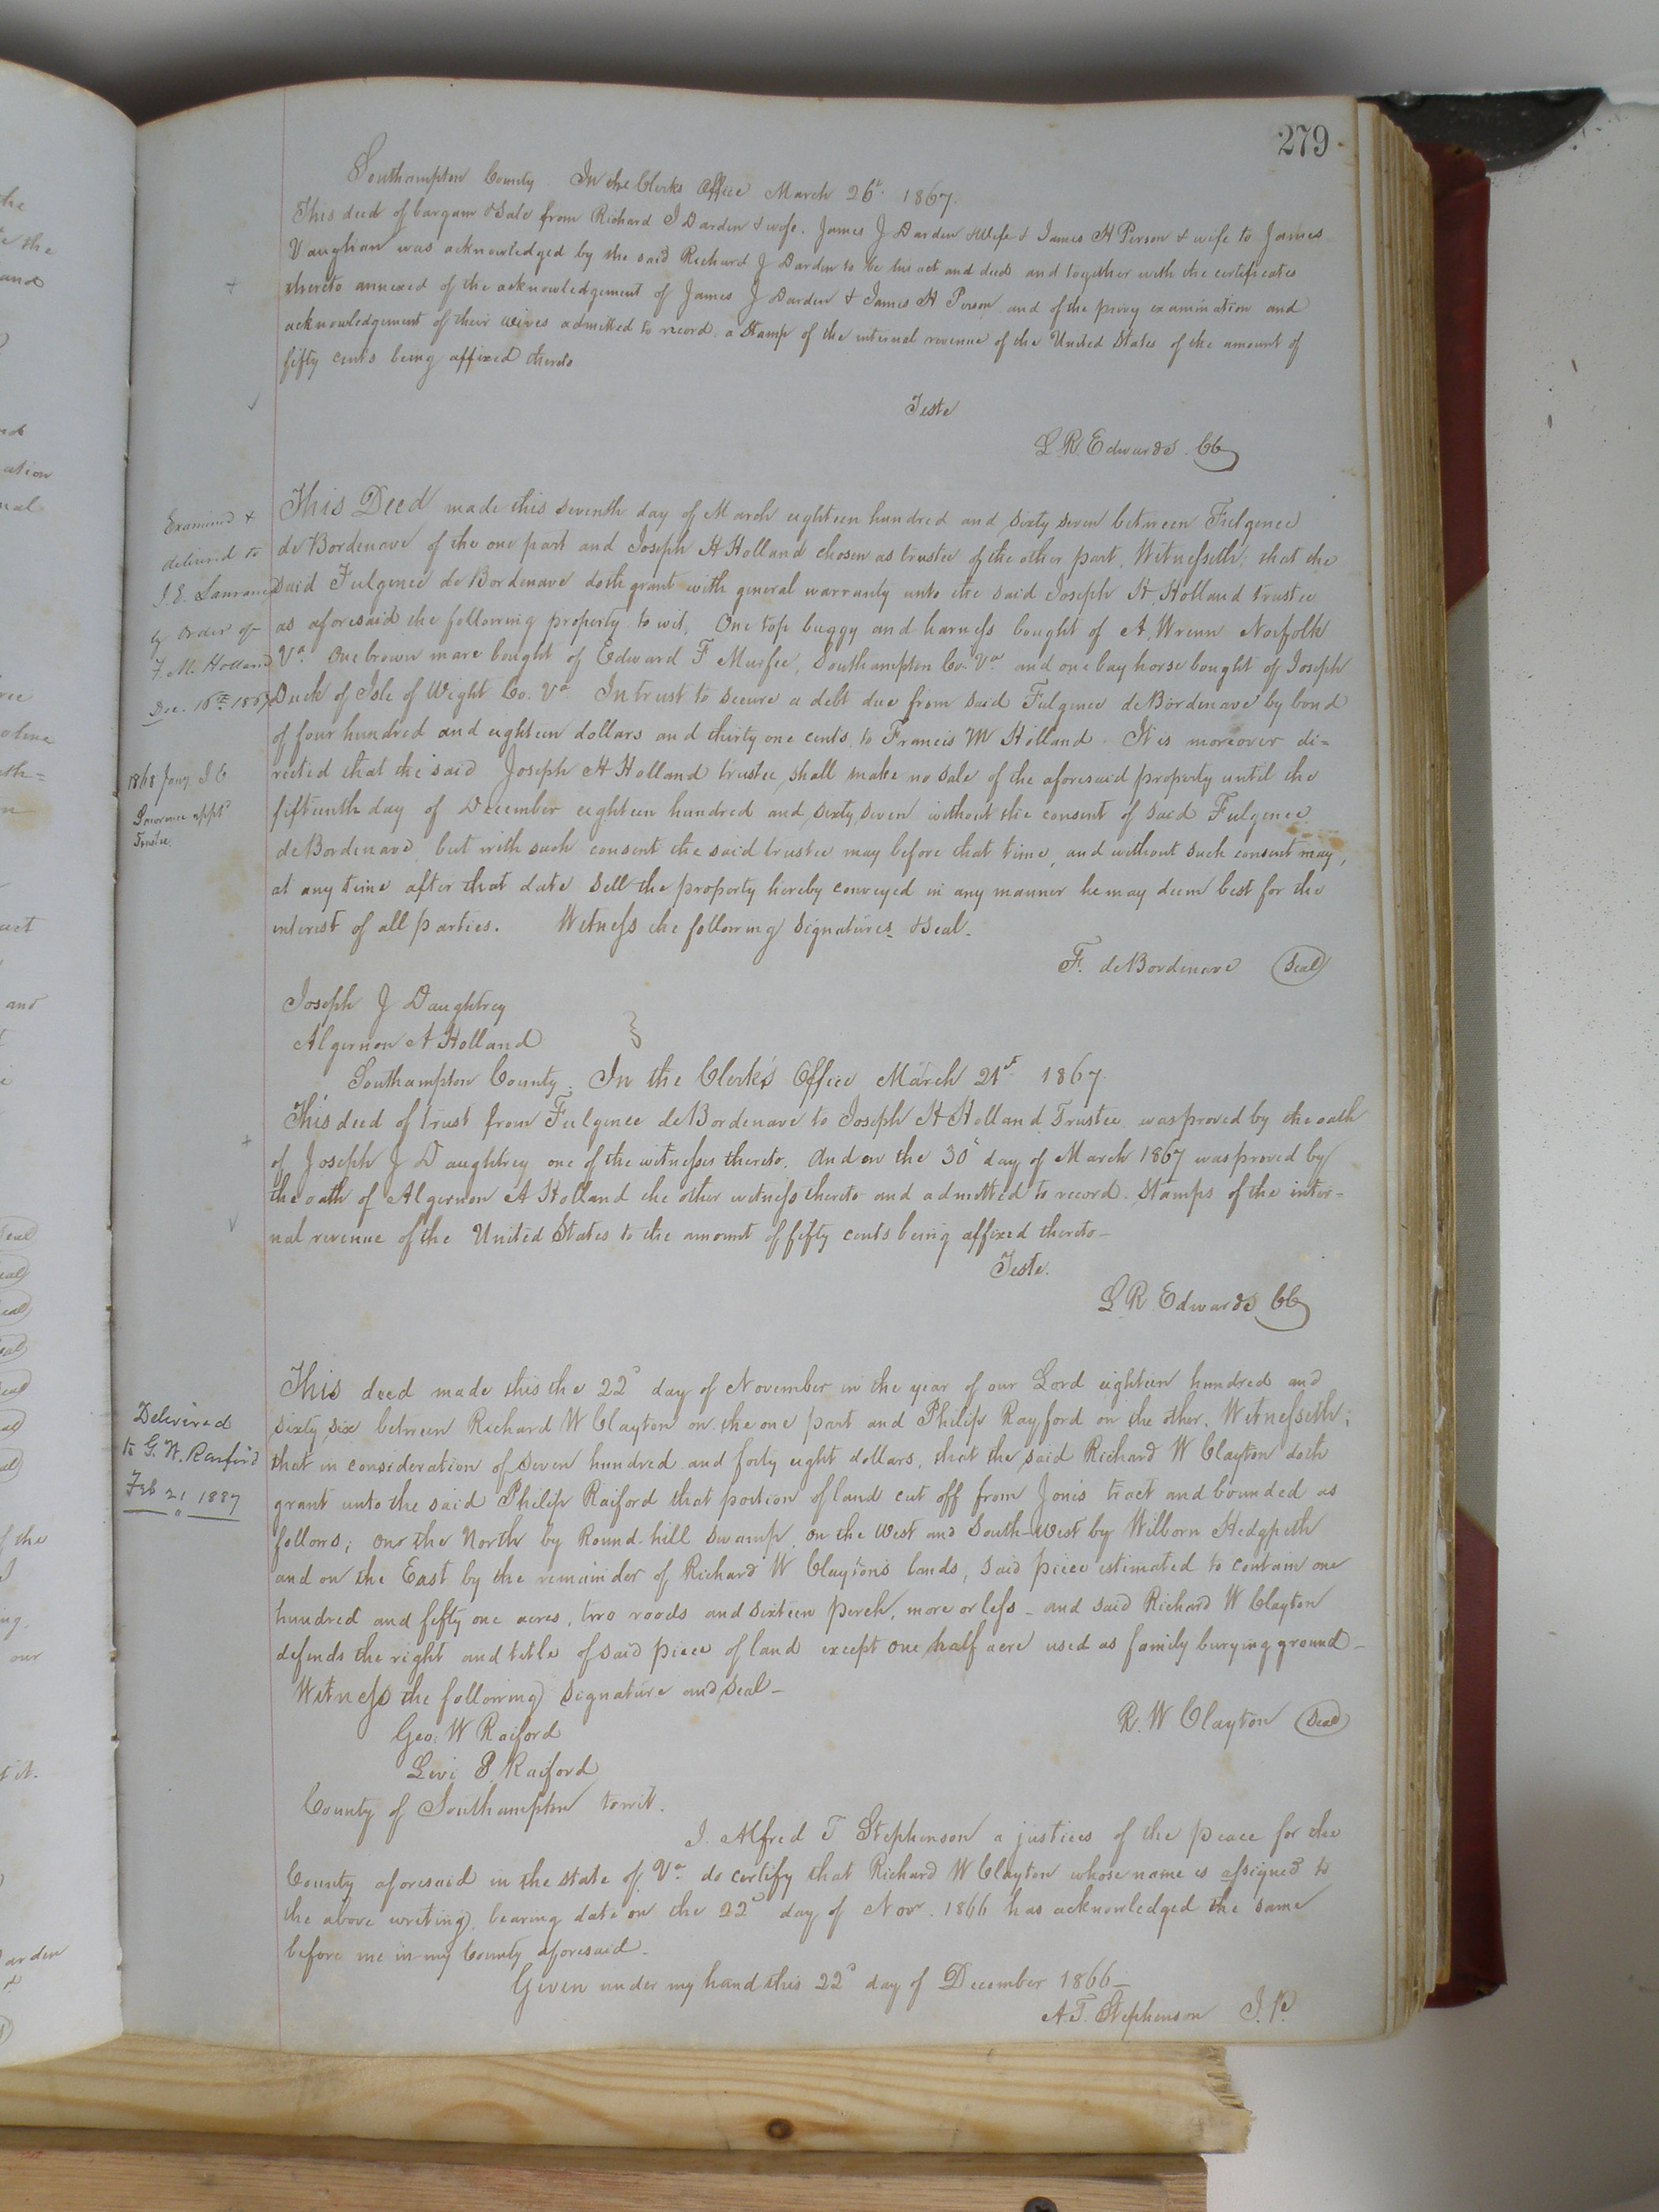 279
Southampton County. In the Clerks Office March 26t. 1867.
This deed of bargain & Sale from Richard J Darden & wife. James J Darden & Wife & James H Person & wife to James
Vaughan was acknowledged by the said Richard J Darden to be his act and deed and together with the certificates
thereto annexed of the acknowledgement of James J Darden & James H Person and of the privy examination and
acknowledgement of their wives admitted to record. a Stamp of the internal revenue of the United States of the amount of
fifty cents being affixed thereto
Teste
L R. Edwards. CC
Examined &
delivered to
J. E. Lawrance
by order of
F. M. Holland
Dec. 16th 1867
1868 Jany J E
Lawrance appt
Trustee.
This Deed made this seventh day of March eighteen hundred and sixty seven between Fulgence
de Bordenave of the one part and Joseph H Holland chosen as trustee of the other part, Witnesseth; that the
said Fulgence de Bordenave doth grant with general warranty unto the said Joseph H. Holland trustee
as aforesaid the following property to wit, One top buggy and harness bought of A, Wrenn Norfolk
Va. One brown mare bought of Edward F Murfee, Southampton Co. Va and one bay horse bought of Joseph
Duck of Isle of Wight Co. Va. In trust to secure a debt due from said Fulgence deBordenave by bond
of four hundred and eighteen dollars and thirty one cents, to Francis M Holland. It is moreover di=
rected that the said Joseph H Holland trustee, shall make no sale of the aforesaid property until the
fifteenth day of December eighteen hundred and sixty seven without the consent of said Fulgence
deBordenave, but with such consent the said trustee may before that time, and without such consent may,
at any time after that date sell the property hereby conveyed in any manner he may deem best for the
interest of all parties. Witness the following signatures & Seal.
F. deBordenave Seal
Joseph J Daughtrey
Algernon A Holland
Southampton County. In the Clerk's Office March 21st 1867.
This deed of trust from Fulgence deBordenave to Joseph H Holland Trustee was proved by the oath
of Joseph J Daughtrey one of the witnesses thereto. And on the 30 day of March 1867 was proved by
the oath of Algernon A Holland the other witness thereto and admitted to record. Stamps of the inter-
nal revenue of the United States to the amount of fifty cents being affixed thereto-
Teste.
L R Edwards CC
Delivered
to G. W. Raiford
Feb 21 1887
This deed made this the 22d day of November in the year of our Lord eighteen hundred and
sixty six between Richard W Clayton on the one part and Philip Rayford on the other. Witnesseth;
that in consideration of seven hundred and forty eight dollars, that the said Richard W Clayton doth
grant unto the said Philip Raiford that portion of land cut off from Jones tract and bounded as
follows; on the North by Round-hill swamp, on the West and South-West by Wilborn Hedgpeth
and on the East by the remainder of Richard W Clayton's lands, said piece estimated to contain one
hundred and fifty one acres, two roods and sixteen perch, more or less - and said Richard W Clayton
defends the right and title of said piece of land except one half acre used as family burying ground-
Witness the following signature and seal-
R. W Clayton Seal
Geo. W Raiford
Levi P. Raiford
County of Southampton to wit.
I. Alfred T Stephenson a justices of the peace for the
County aforesaid in the state of Va. do certify that Richard W Clayton whose name is assigned to
the above writing, bearing date on the 22d day of Nov. 1866 has acknowledged the same
before me in my County aforesaid.
Given under my hand this 22d day of December 1866-
A. T. Stephenson J. P.